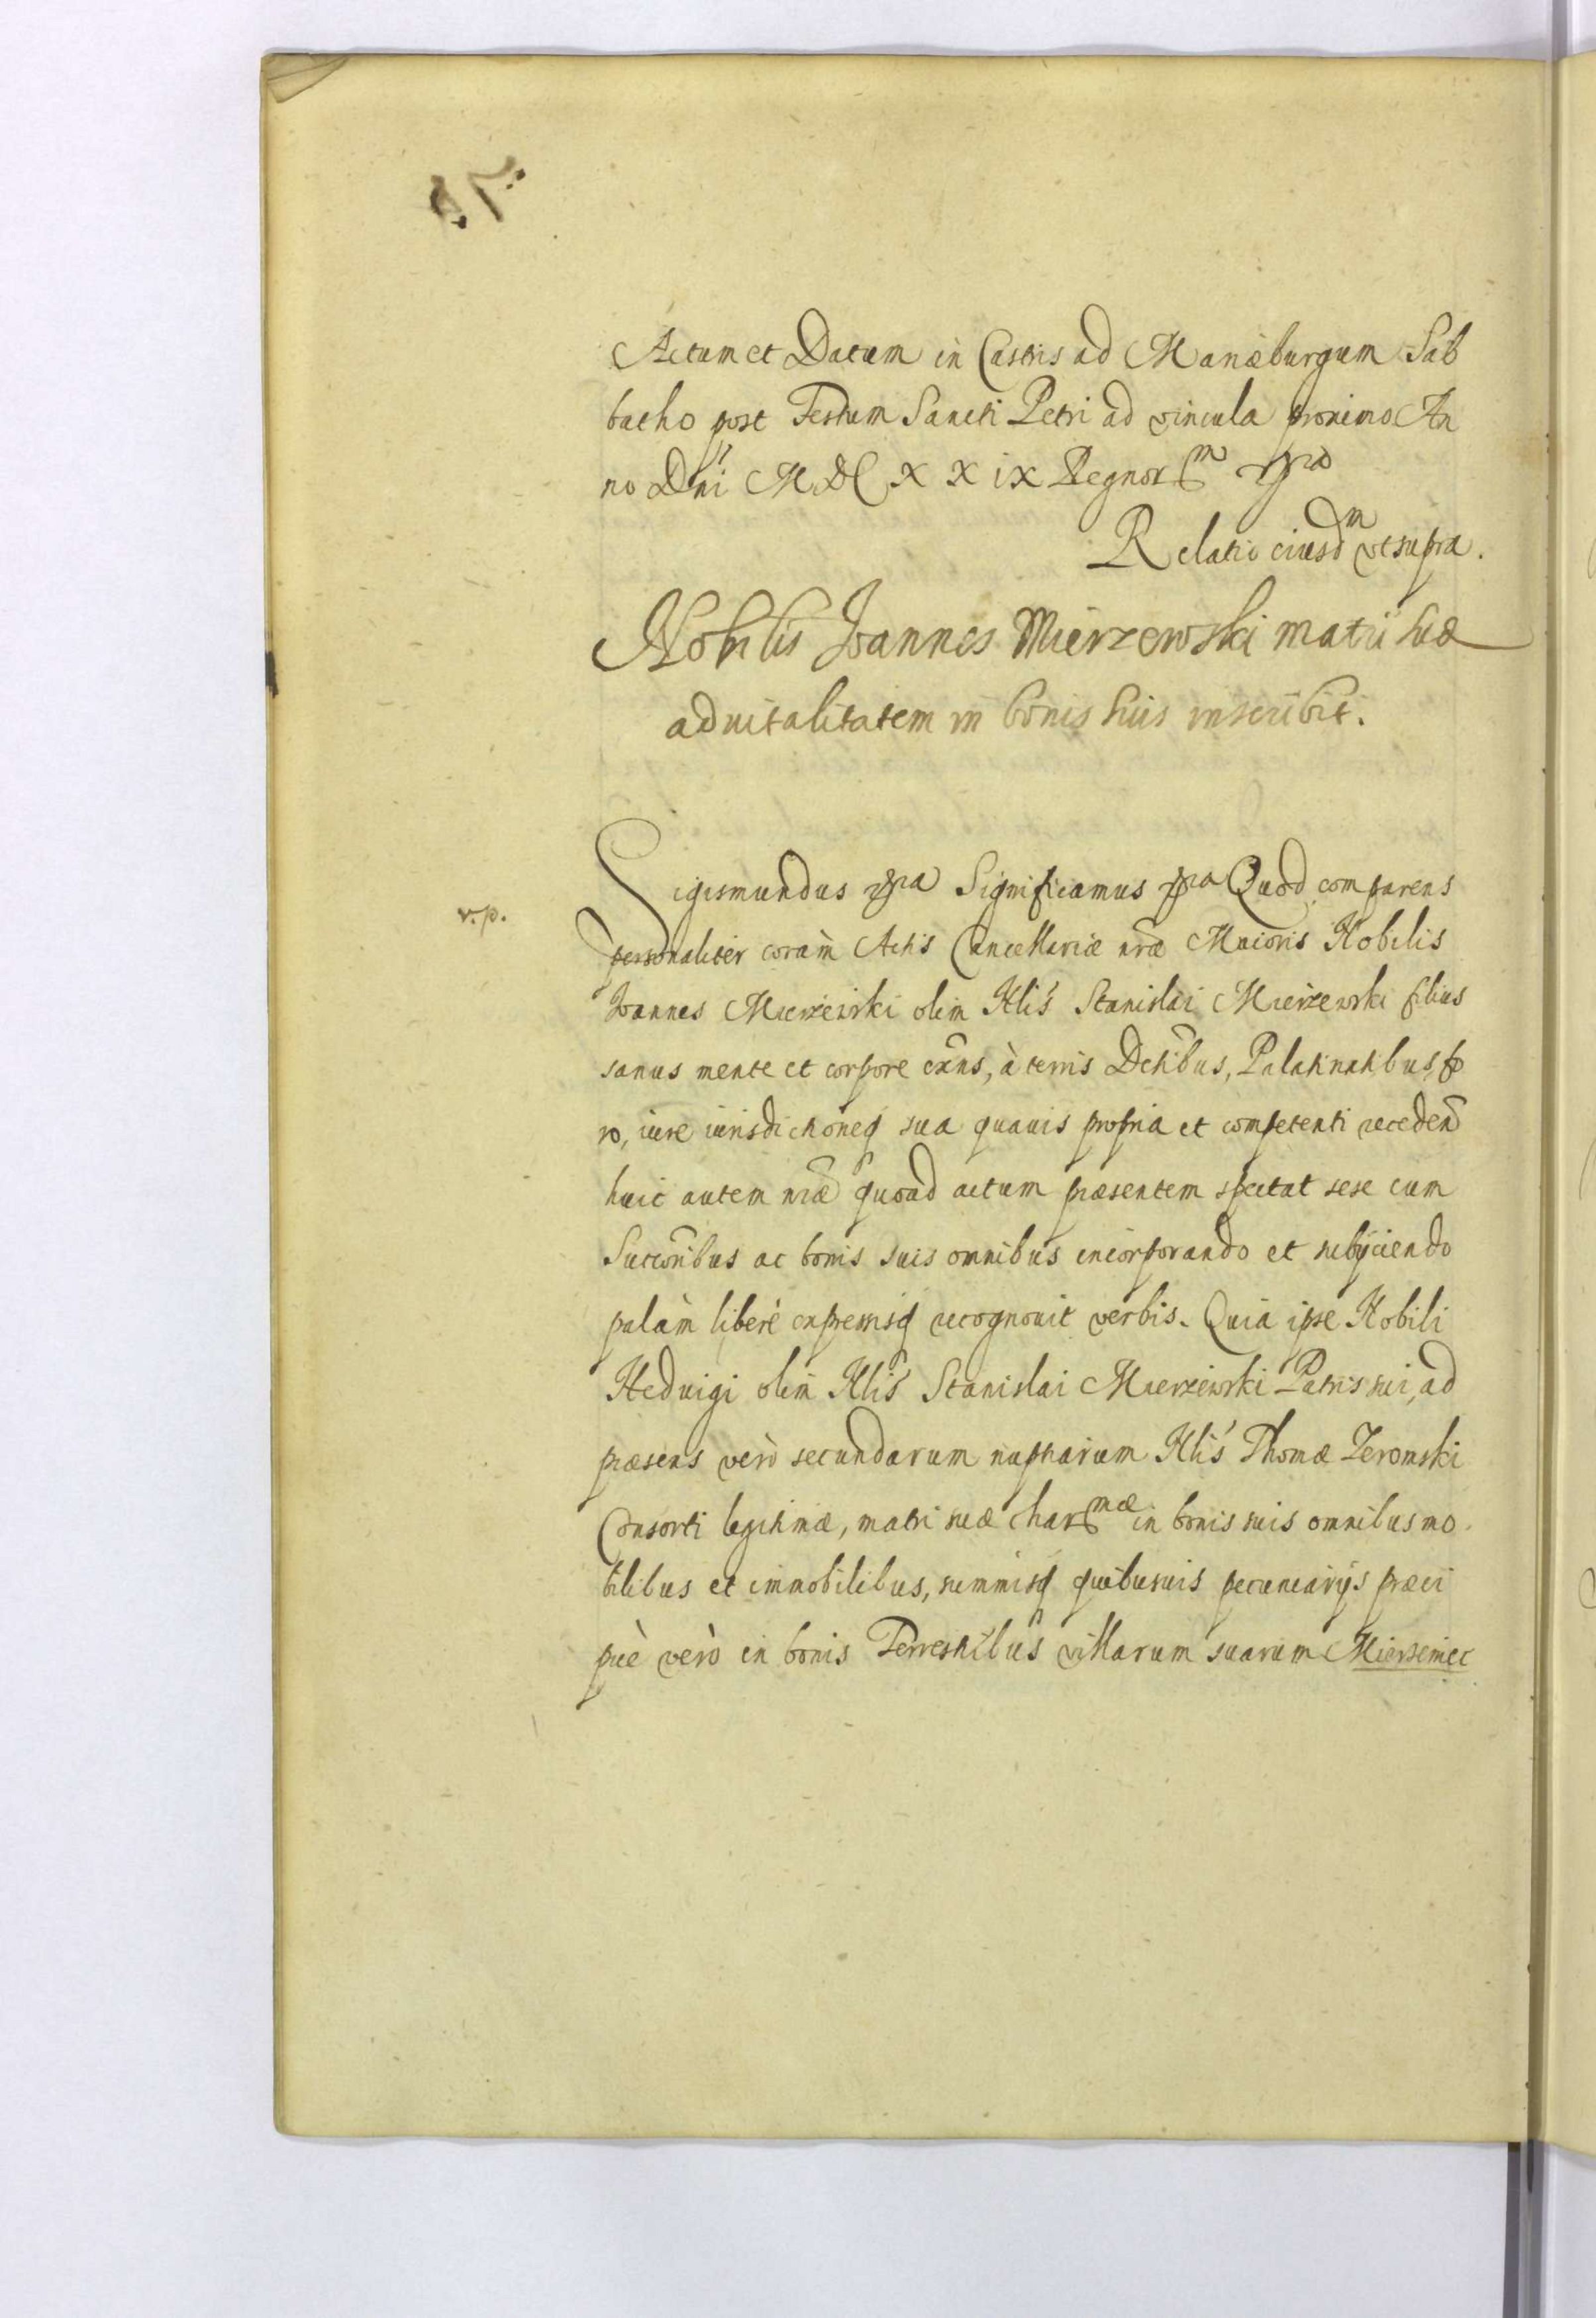 Actum et Datum in Castris ad Mariæburgum Sab
batho post Festum Sancti Petri ad vincula proximo An
no Dni MDCXXix Regnorm
Relatio eiusdm vt supra.
Nobilis Joannes Mierzewski matri suæ
aduitalitatem in bonis suis inscribit.
Sigismundus Significamus Quod comparens
v.p.
personaliter coràm Actis Cancellariæ nræ Maioris Nobilis
Joannes Mierzewski olim Nlis Stanislai Mierzewski filius
sanus mente et corpore exns, à terris Dctibus, Palatinatibus, fo
ro, iure iurisdictioneq sua quauis propria et competenti receden
huic autem nræ quoad actum præsentem spectat sese cum
Succoribus ac bonis suis omnibus incorporando et subijciendo
palàm liberè expressisq recognouit verbis. Quia ipse Nobili
Heduigi olim Nlis Stanislai Mierzewski Patris sui, ad
præsens verò secundarum nuptiarum Nlis Thomæ Zeromski
Consorti legitimæ, matri suæ charmæ in bonis suis omnibus mo
bilibus et immobilibus, summisq quibusuis pecuniarijs præci
puè verò in bonis Terrestribus villarum suarum Mierzeniec